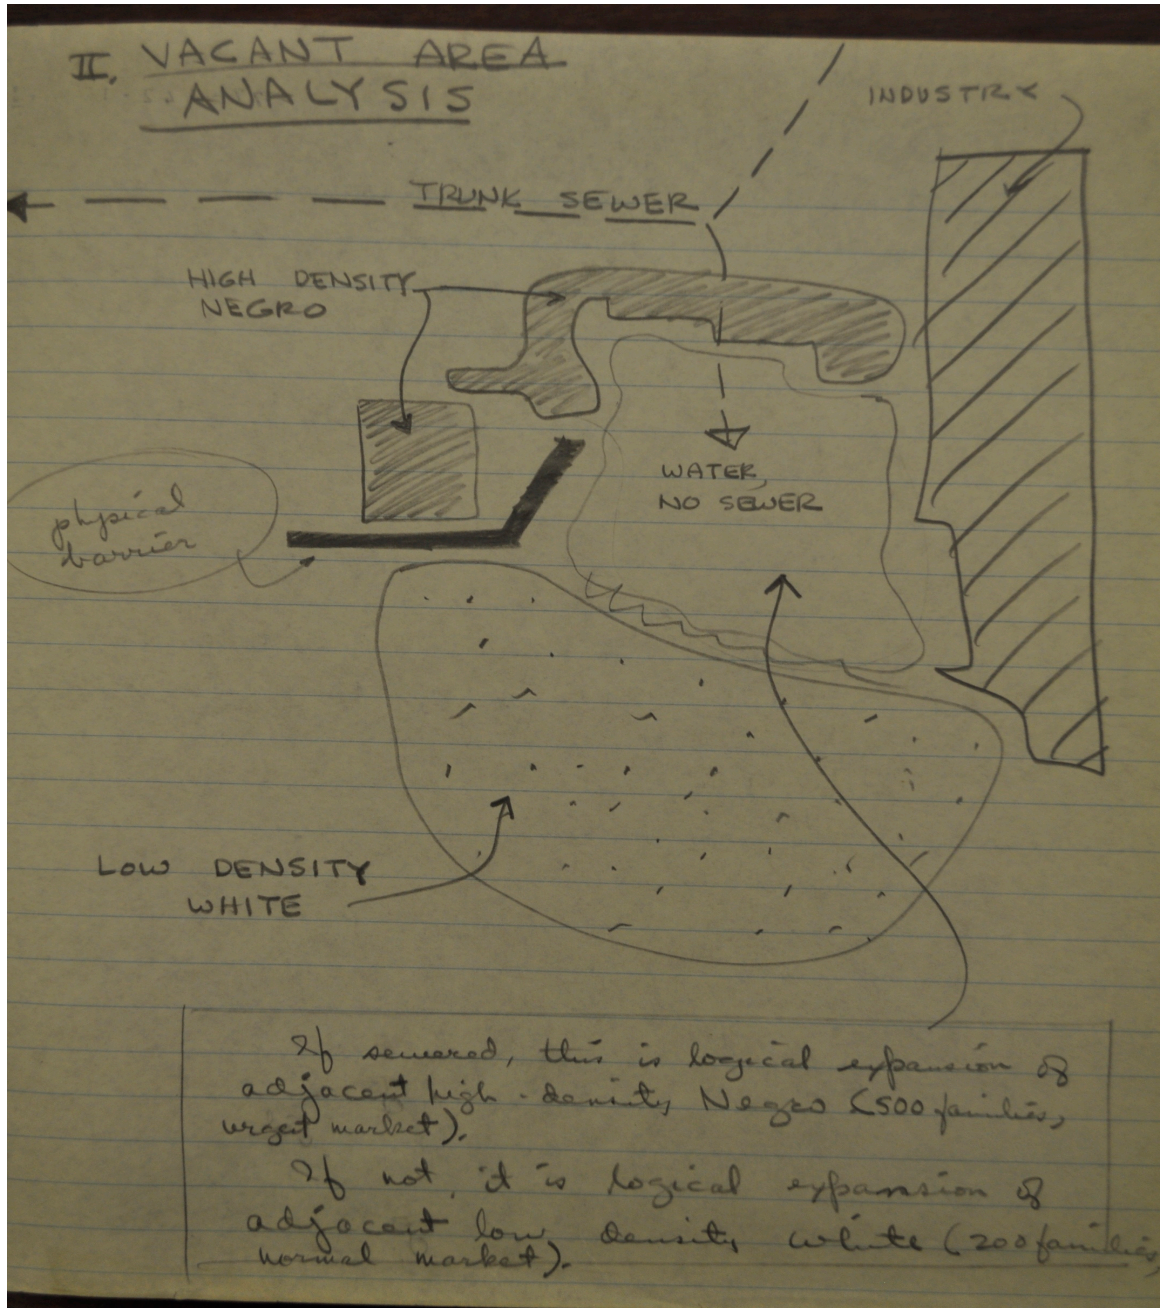 II. VACANT AREA
ANALYSIS
INDUSTRY
TRUNK SEWER
HIGH DENSITY
NEGRO
WATER,
NO SEWER
physical
barrier
LOW DENSITY
WHITE
If sewered, this is logical expansion of
adjacent high-density Negro (500 families,
urgent market).
If not, it is logical expansion of
adjacent low density white (200 families,
normal market).